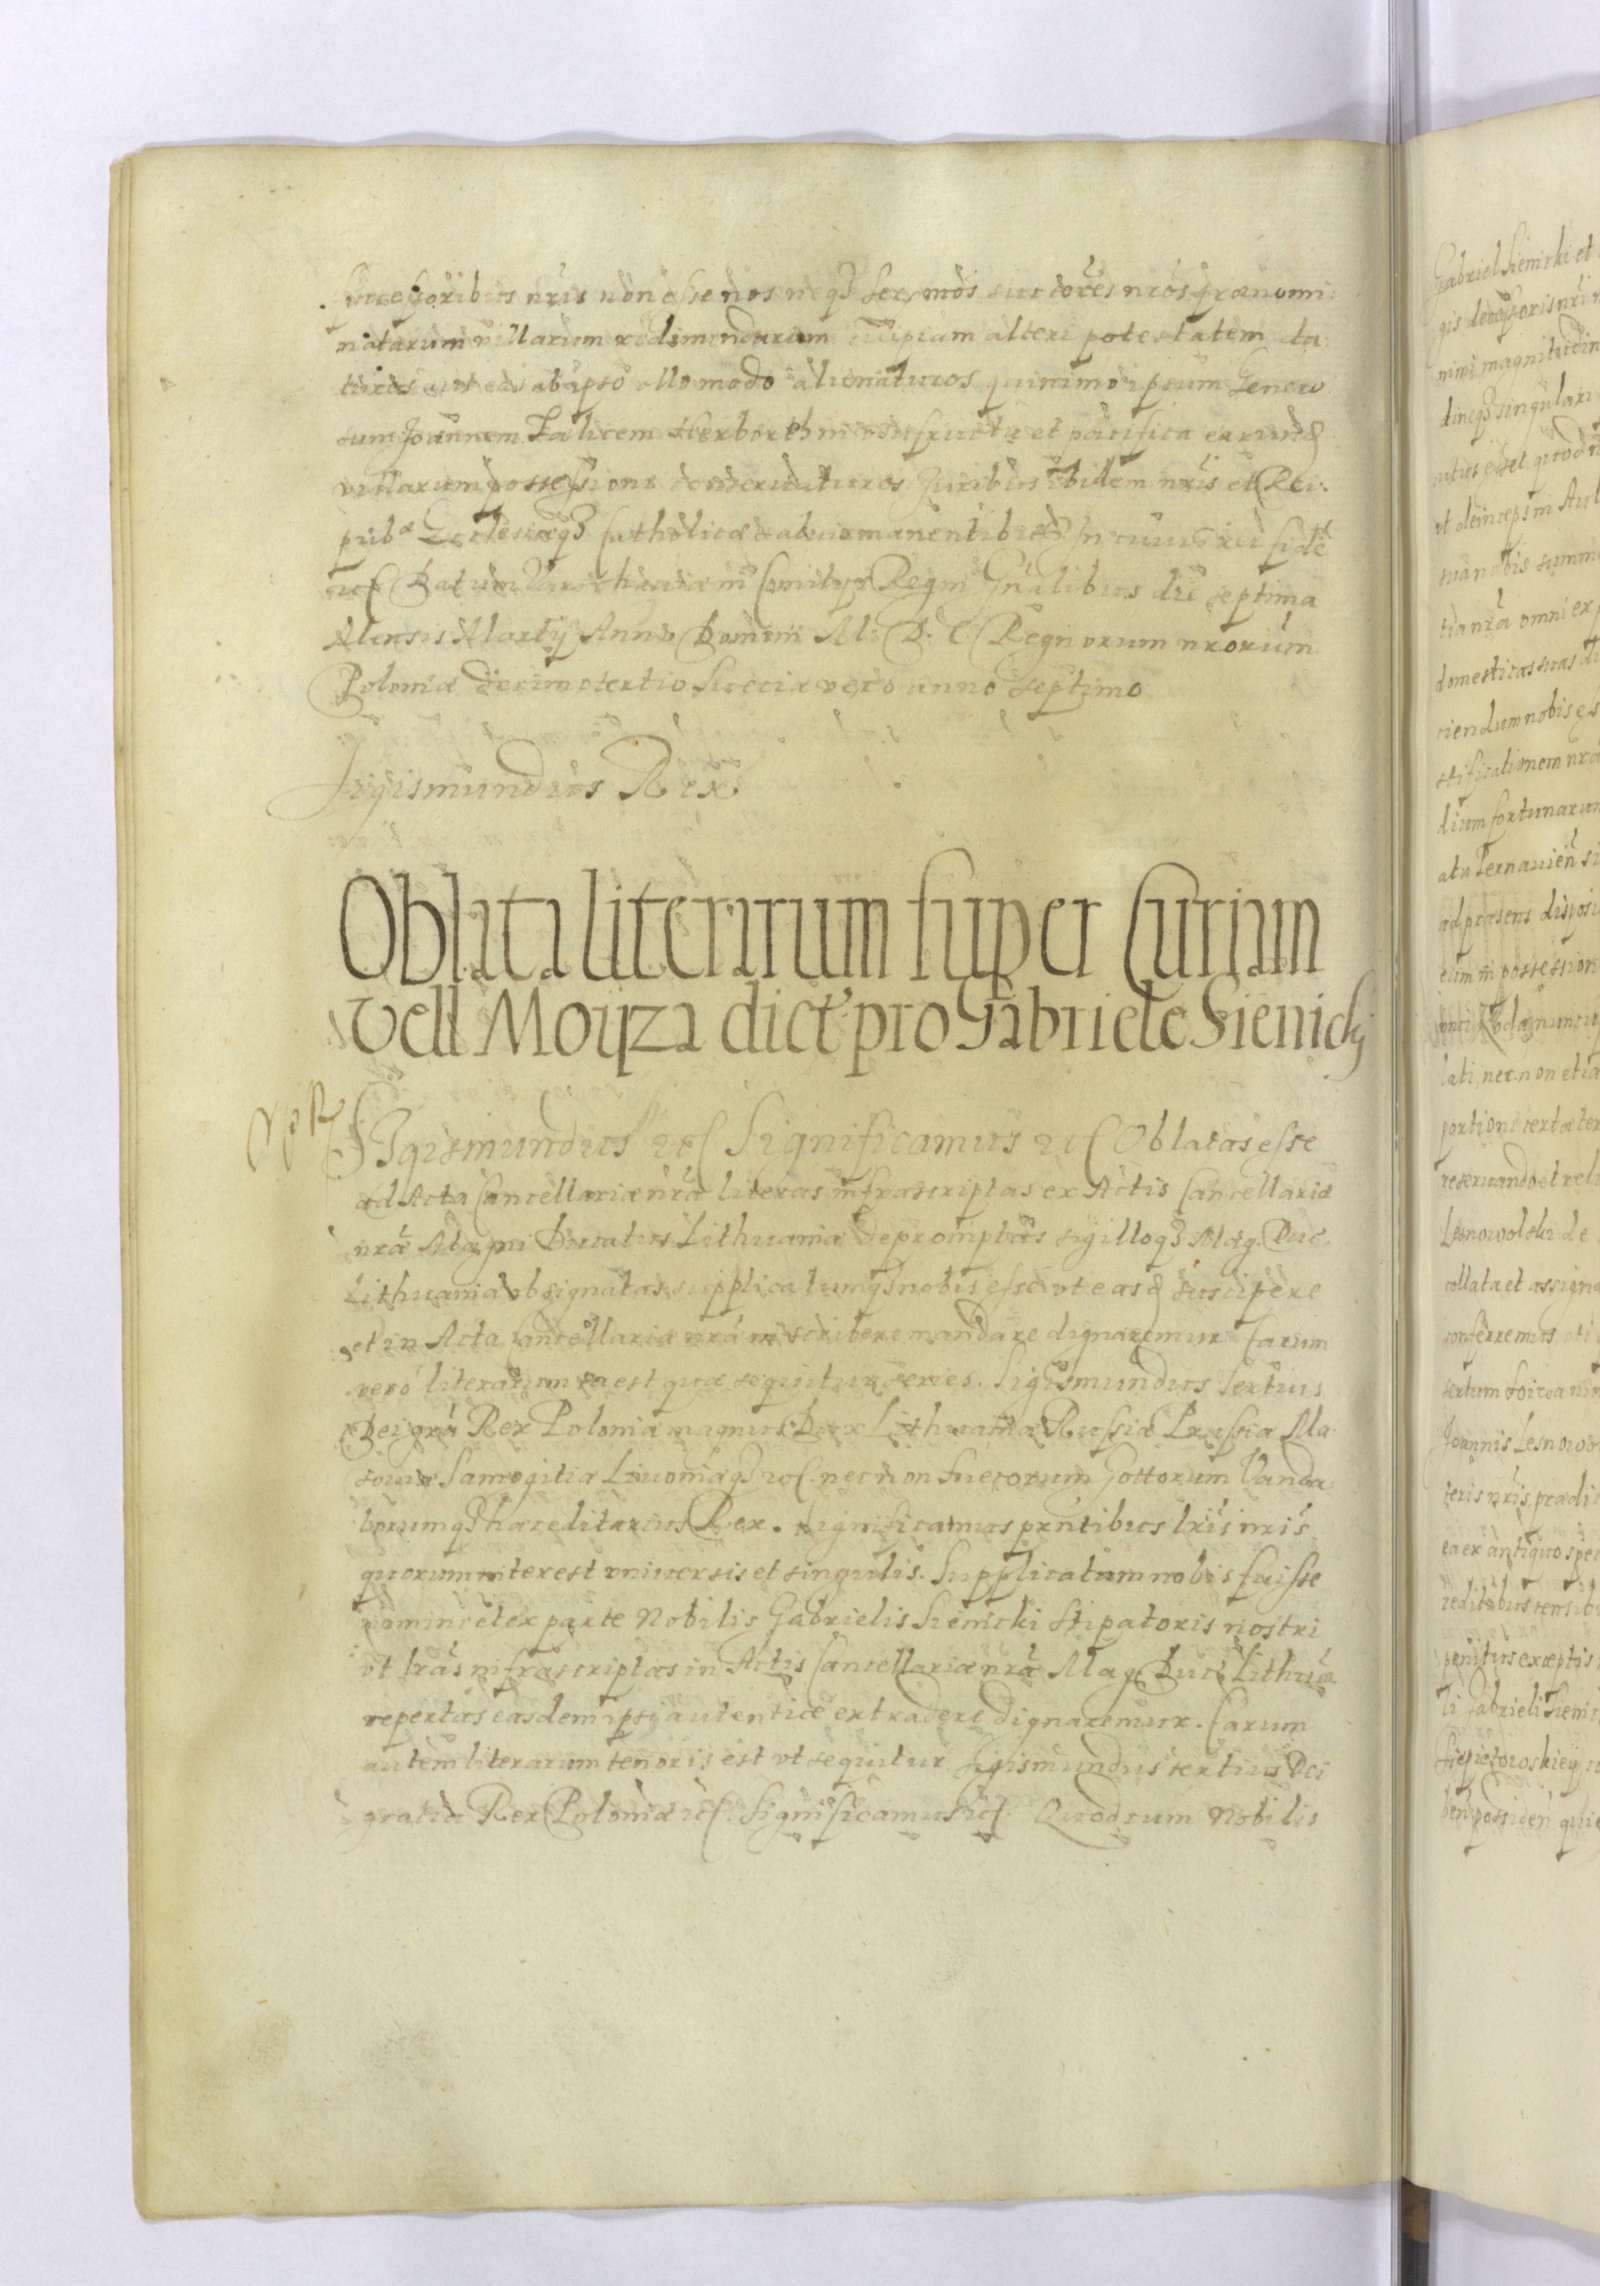 successoribus nris non esse nos neqз Sermos succores nros prænomi-
natarum villarum redimendarum cuipiam alteri potestatem da-
turos aut eas ab ipso vllo modo alienaturos quinimo ipsum Genero
sum Joannem Falicem Herborth in vsufructu et pacifica earund
villarum possessione conseruaturos Juribus ibidem nris et Rei-
pub Ecclesiæqз Catholicæ saluis manentibus In cuius rei fide
etc Datum Varschauiæ in Comitijs Regni Gnalibus die septima
Mensis Martij Anno Domini M. D. C. Regnorum nrorum
Poloniæ decimotertio Sueciæ vero anno septimo
Sigismundus Rex
Oblata literarum super Curiam
vell Moyza dict pro Gabriele Sienicki
SIgismundus etc Significamus etc Oblatas esse
ad Acta Cancellariæ nræ literas infrascriptas ex Actis Cancellariæ
nræ Magni Ducatus Lithuaniæ depromptas sigilloqз Mag. Duc.
Lithuaniæ obsignatas supplicatumqз nobis esse vt easd suscipere
et in Acta Cancellariæ nræ inscribere mandare dignaremur Earum
vero literarum ea est quæ sequitur series. Sigismundus Tertius
Dei gra Rex Poloniæ magnus Dux Lithuaniæ Russiæ Prussiæ Ma-
souiæ Samogitiæ Liuoniæqз etc. necnon Suecorum Gottorum Vanda-
lorumqз hæreditarius Rex. Significamus pntibus lris nris
quorum interest vniuersis et singulis. Supplicatum nobis fuisse
nomine et ex parte Nobilis Gabrielis Sienicki Stipatoris nostri
vt lras infrascriptas in Actis Cancellariæ nræ Mag Duc Lithuæ
repertas easdem ipsi autentice extradere dignaremur. Earum
autem literarum tenoris est vt sequitur Sigismundus tertius Dei
gratia Rex Poloniæ etc. Significamus etc. Quod cum Nobilis
Gabriel Sienicki et
gis decessoris nri
nimi magnitudin
dineqз singulari
vt deinceps in Aul
sua nobis summ
tia nra omni exp
domesticas suas
ciendum nobis es
stificationem nra
dium fortunarum
atu Pernauien si
ad præsens dispos
eum in possession
lati, nec non etia
portione certæ ter
reseruando et reli
Lesnowolski de
collata et assigna
conferremus
Joannis Lesnowo
teris nris prædi
ea ex antiquo spec
reditibus censib
penitus exceptis
li Gabrieli Sieni